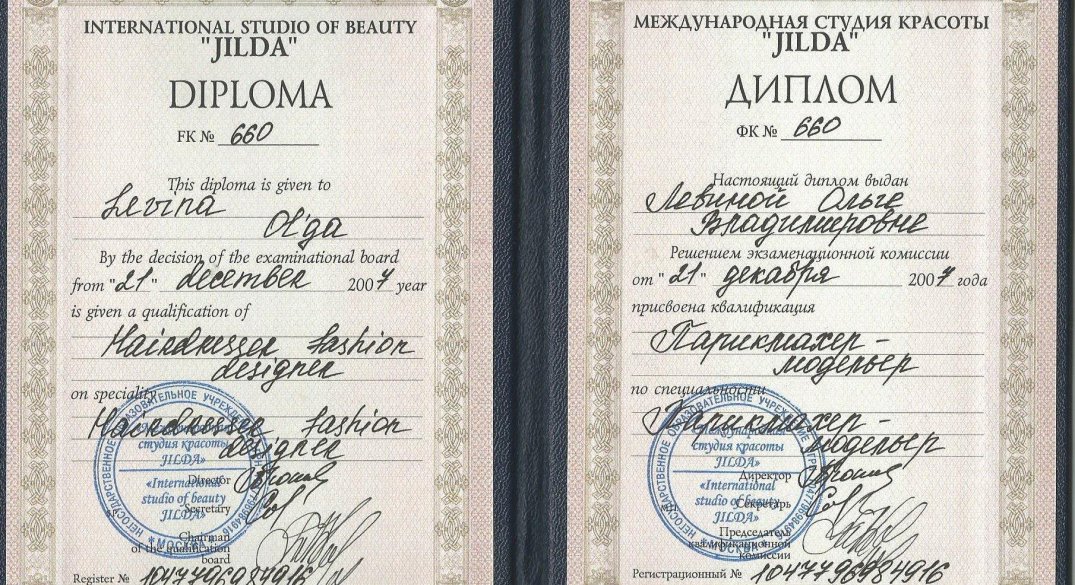 INTERNATIONAL STUDIO OF BEAUTY
"JILDA"
DIPLOMA
FK № 660
This diploma is given to
Levina
Ol'ga
By the decision of the examinational board
from "21" december 2007 year
is given a qualification of
Hairdresser fashion
designer
on speciality
Hairdresser fashion
designer
Director
Secretary
Chairman
of the qualification
board
Register № 1047796984916
НЕГОСУДАРСТВЕННОЕ ОБРАЗОВАТЕЛЬНОЕ УЧРЕЖДЕНИЕ
«Международная
студия красоты
JILDA»
«International
studio of beauty
JILDA»
*МОСКВА*
МЕЖДУНАРОДНАЯ СТУДИЯ КРАСОТЫ
"JILDA"
ДИПЛОМ
ФК № 660
Настоящий диплом выдан
Левиной Ольге
Владимировне
Решением экзаменационной комиссии
от "21" декабря 2007 года
присвоена квалификация
Парикмахер-
модельер
по специальности
Парикмахер-
модельер
Директор
Секретарь
Председатель
квалификационной
комиссии
Регистрационный № 1047796984916
НЕГОСУДАРСТВЕННОЕ ОБРАЗОВАТЕЛЬНОЕ УЧРЕЖДЕНИЕ
«Международная
студия красоты
JILDA»
«International
studio of beauty
JILDA»
*МОСКВА*